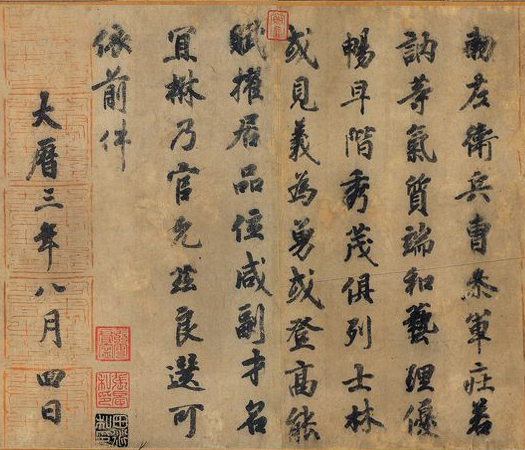 勑左衛兵曹叅軍庄若
訥等氣質端和藝理優
暢早階秀茂俱列士林
或見義為勇或登高能
賦擢居品位咸副才名
宜楙乃官允茲良選可
依前件
大曆三年八月四日